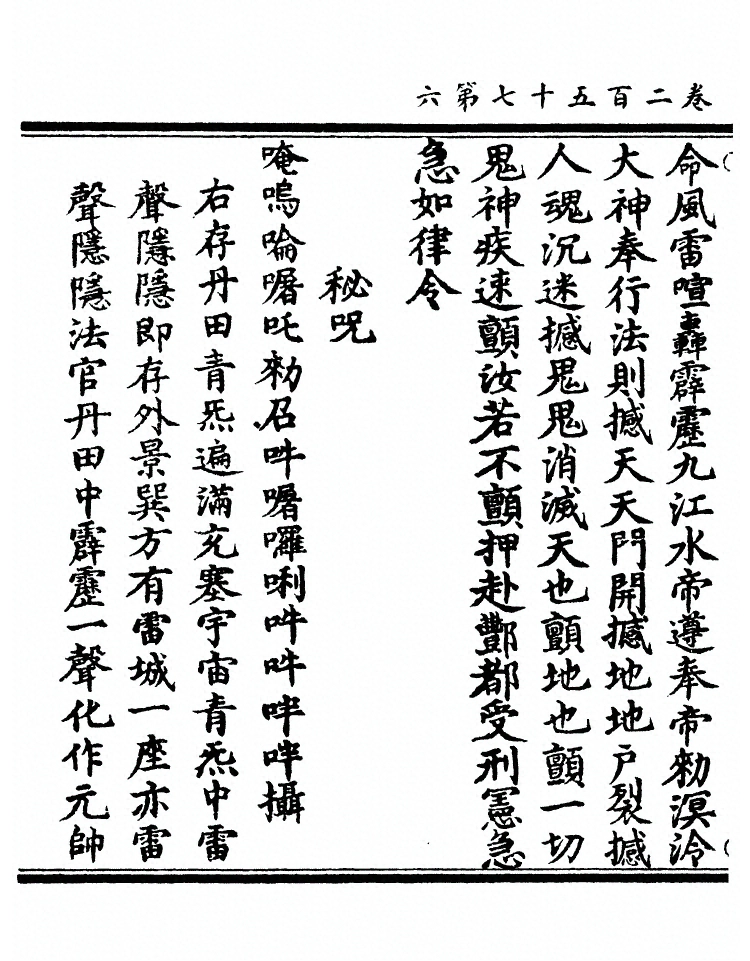 卷二百五十七第六
命風雷喧轟霹靂九江水帝遵奉帝勑溟泠
大神奉行法則撼天天門開撼地地戶裂撼
人魂沉迷撼鬼鬼消滅天也顫地也顫一切
鬼神疾速顫汝若不顫押赴酆都受刑憲急
急如律令
秘呪
唵嗚㖮囑吒勑召吽囑囉唎吽吽𠰷𠰷攝
右存丹田青炁遍滿充塞宇宙青炁中雷
聲隱隱即存外景巽方有雷城一座亦雷
聲隱隱法官丹田中霹靂一聲化作元帥